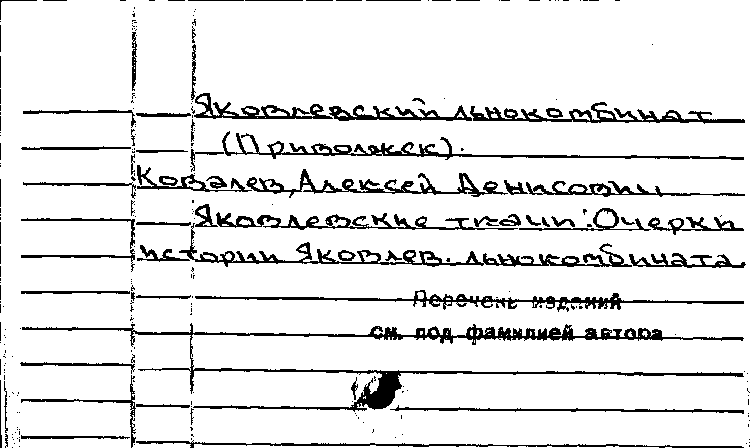 Яковлевский льнокомбинат
(Приволжск).
Ковалев, Алексей Денисович
Яковлевские ткачи: Очерки
истории Яковлев. льнокомбината.
Перечень изданий
см. под фамилией автора